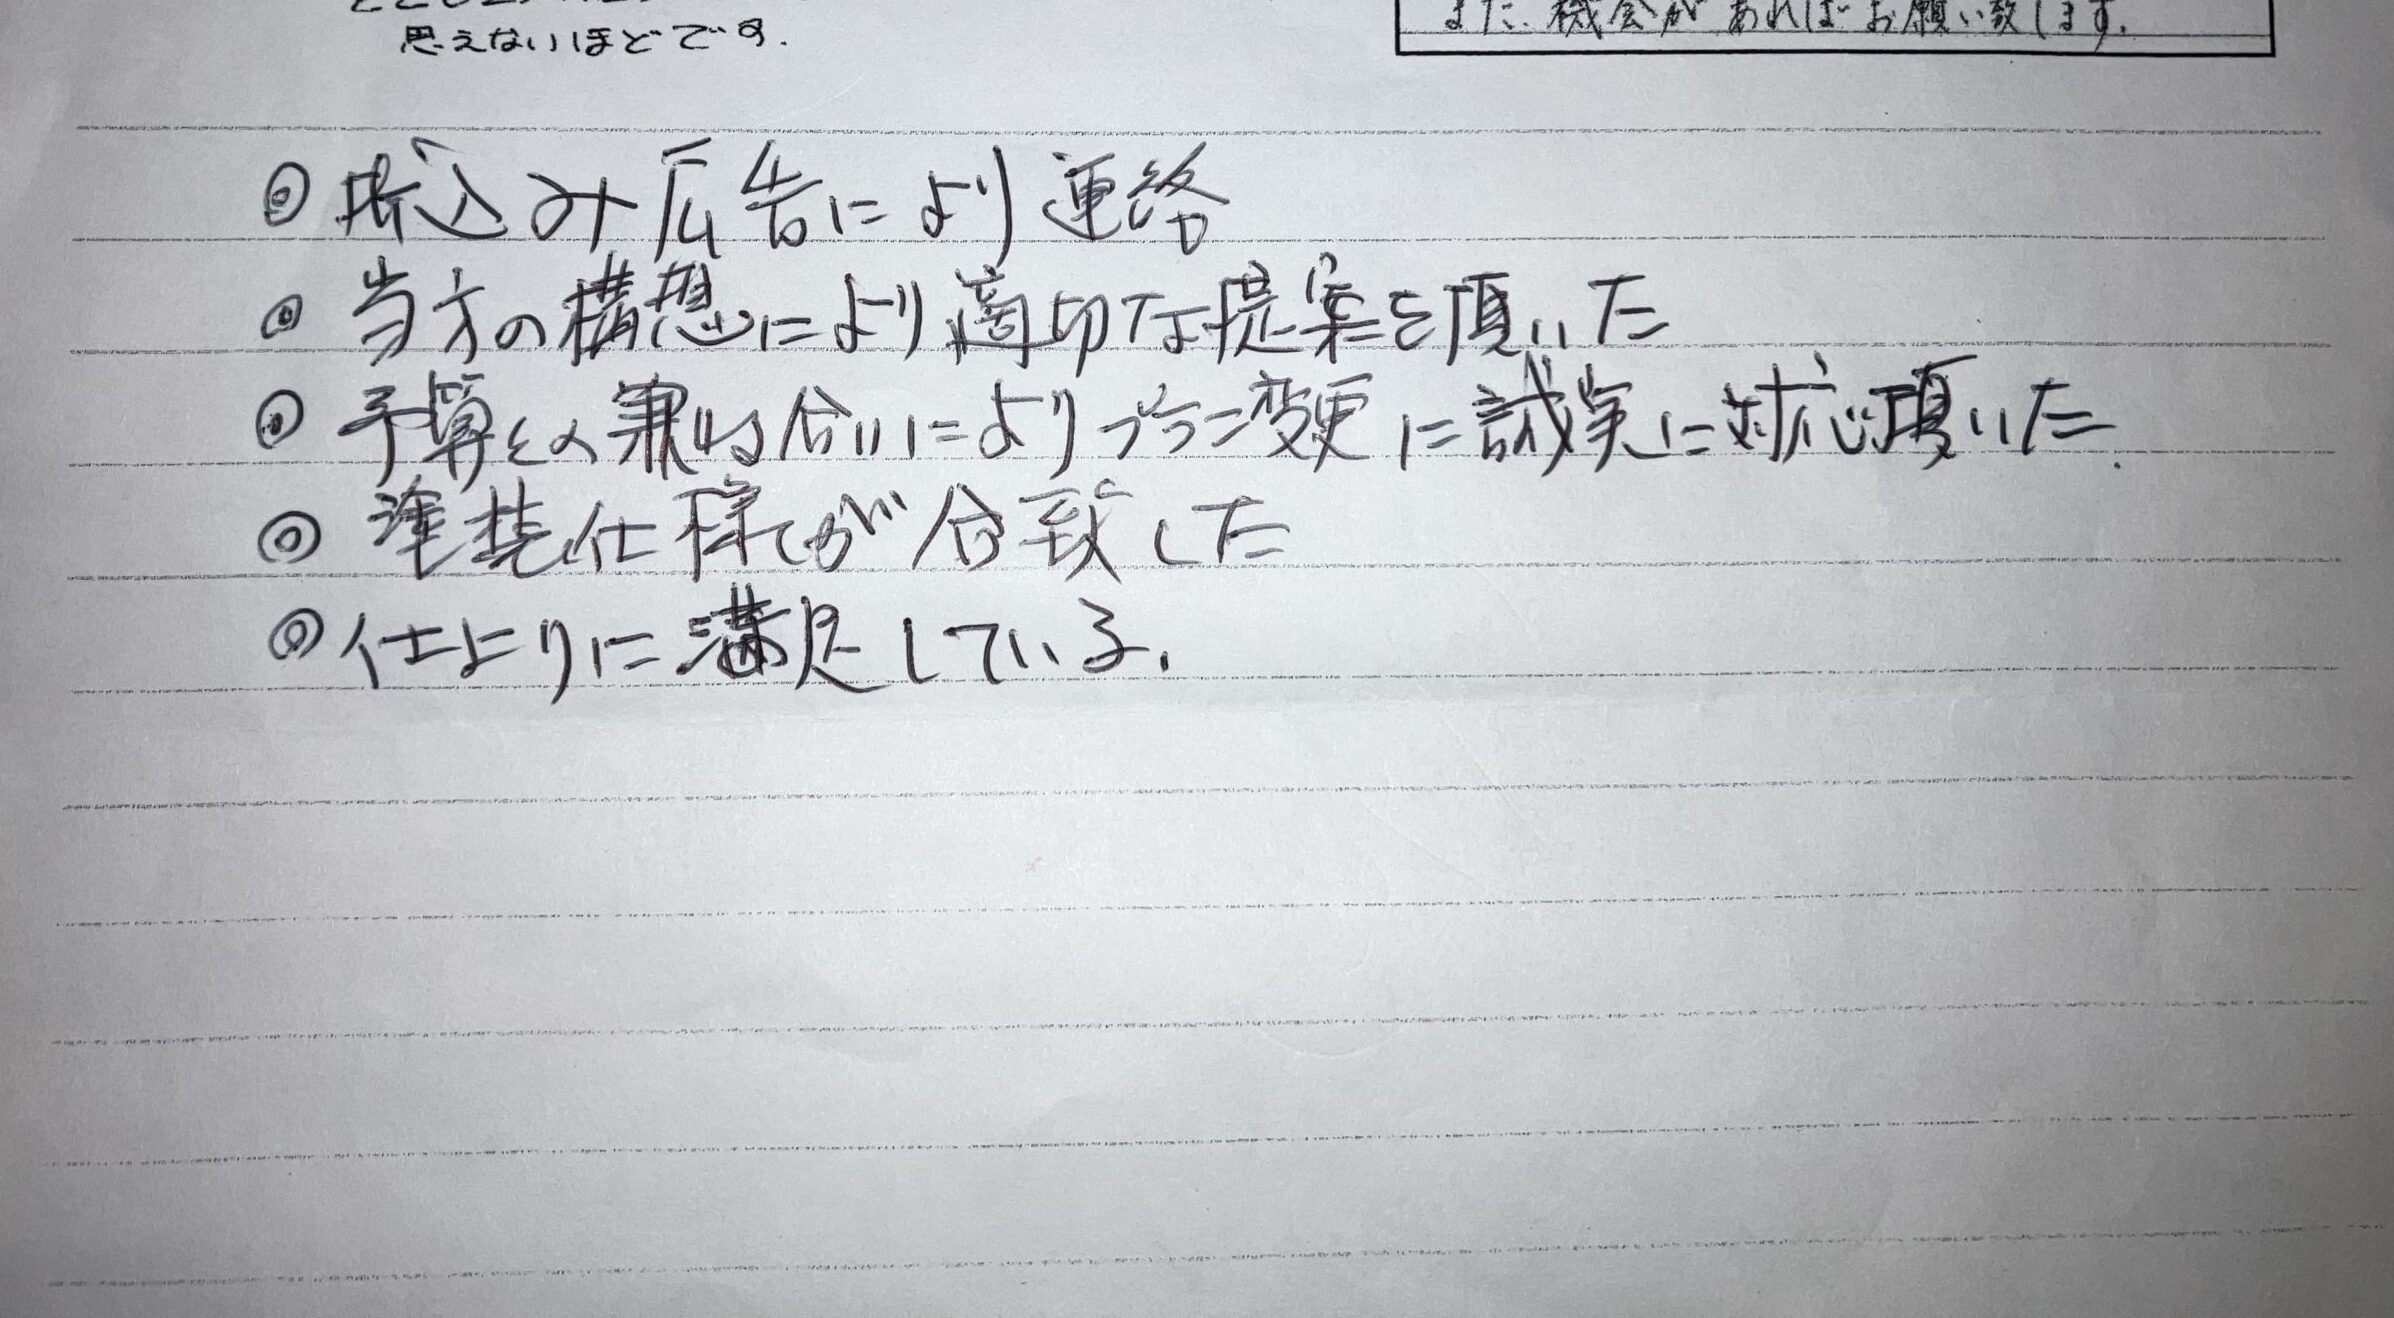 思えないほどです.
また、機会があればお願い致します。
◎ 折込み広告により連絡
◎ 当方の構想により適切な提案を頂いた
◎ 予算との兼ね合いによりプラン変更に誠実に対応頂いた.
◎ 塗装仕様が合致した
◎ 仕上りに満足している.